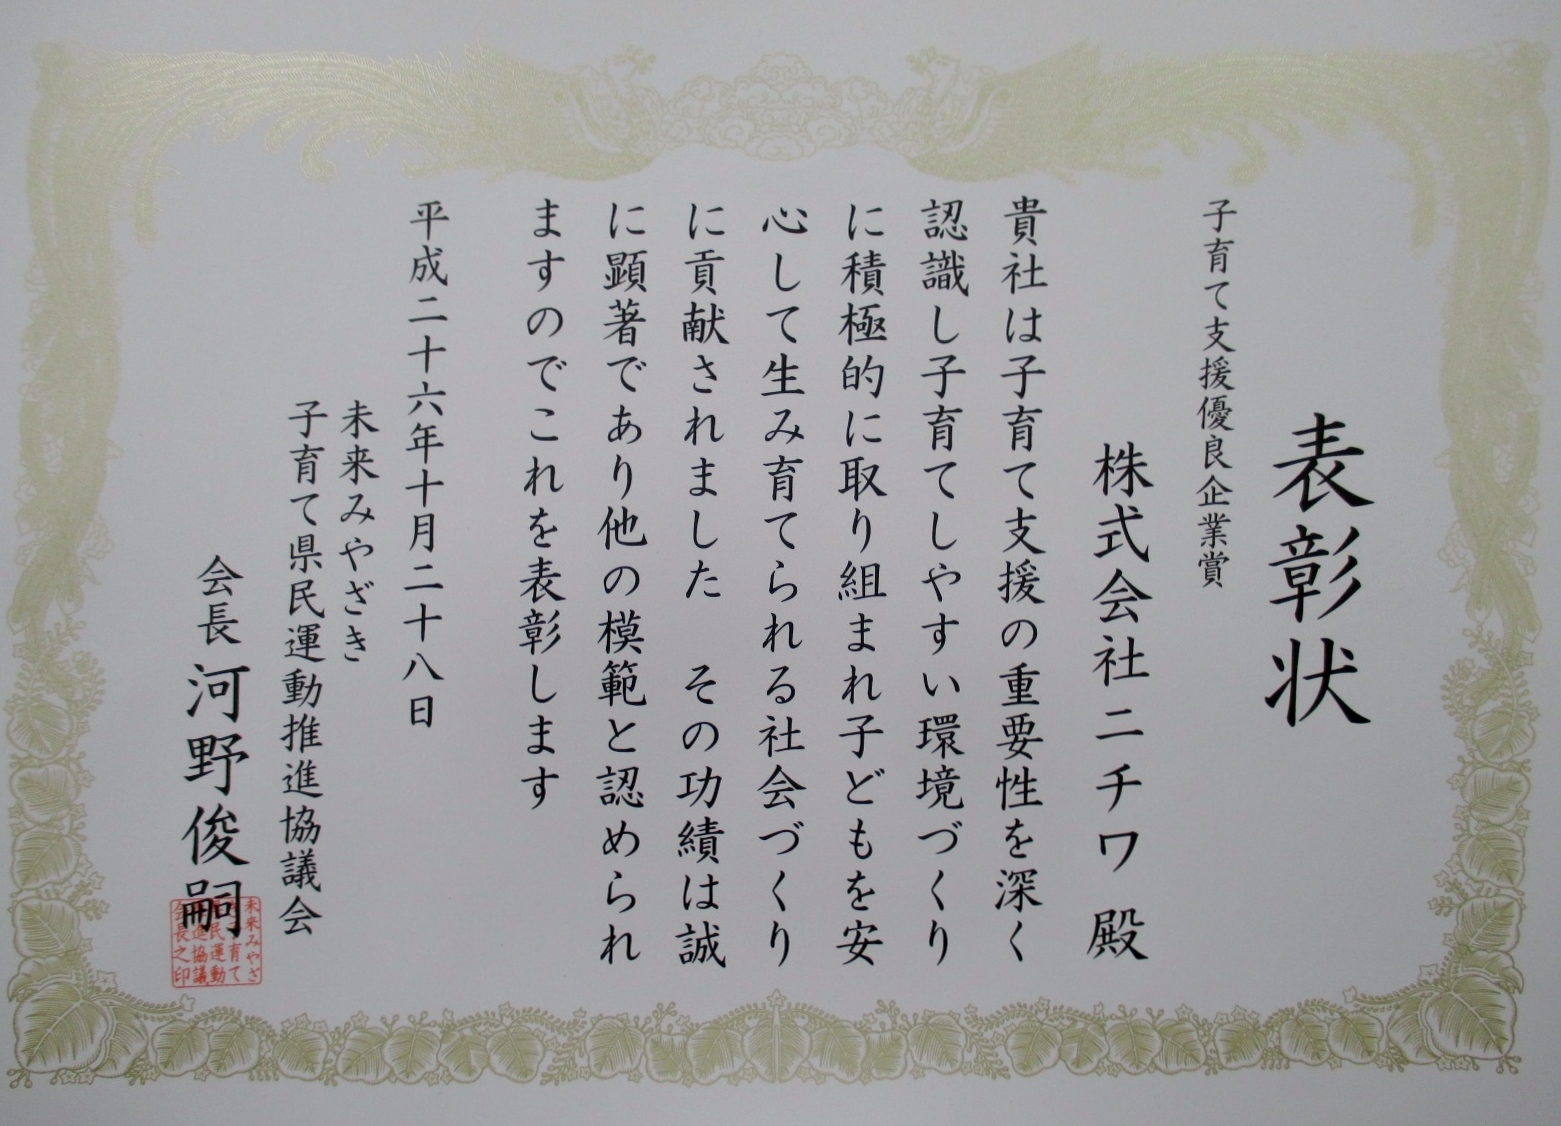 表彰状
子育て支援優良企業賞
株式会社ニチワ 殿
貴社は子育て支援の重要性を深く
認識し子育てしやすい環境づくり
に積極的に取り組まれ子どもを安
心して生み育てられる社会づくり
に貢献されました その功績は誠
に顕著であり他の模範と認められ
ますのでこれを表彰します
平成二十六年十月二十八日
未来みやざき
子育て県民運動推進協議会
会長 河野俊嗣
未来みやざ
育て
民運動
進協議
会長之印